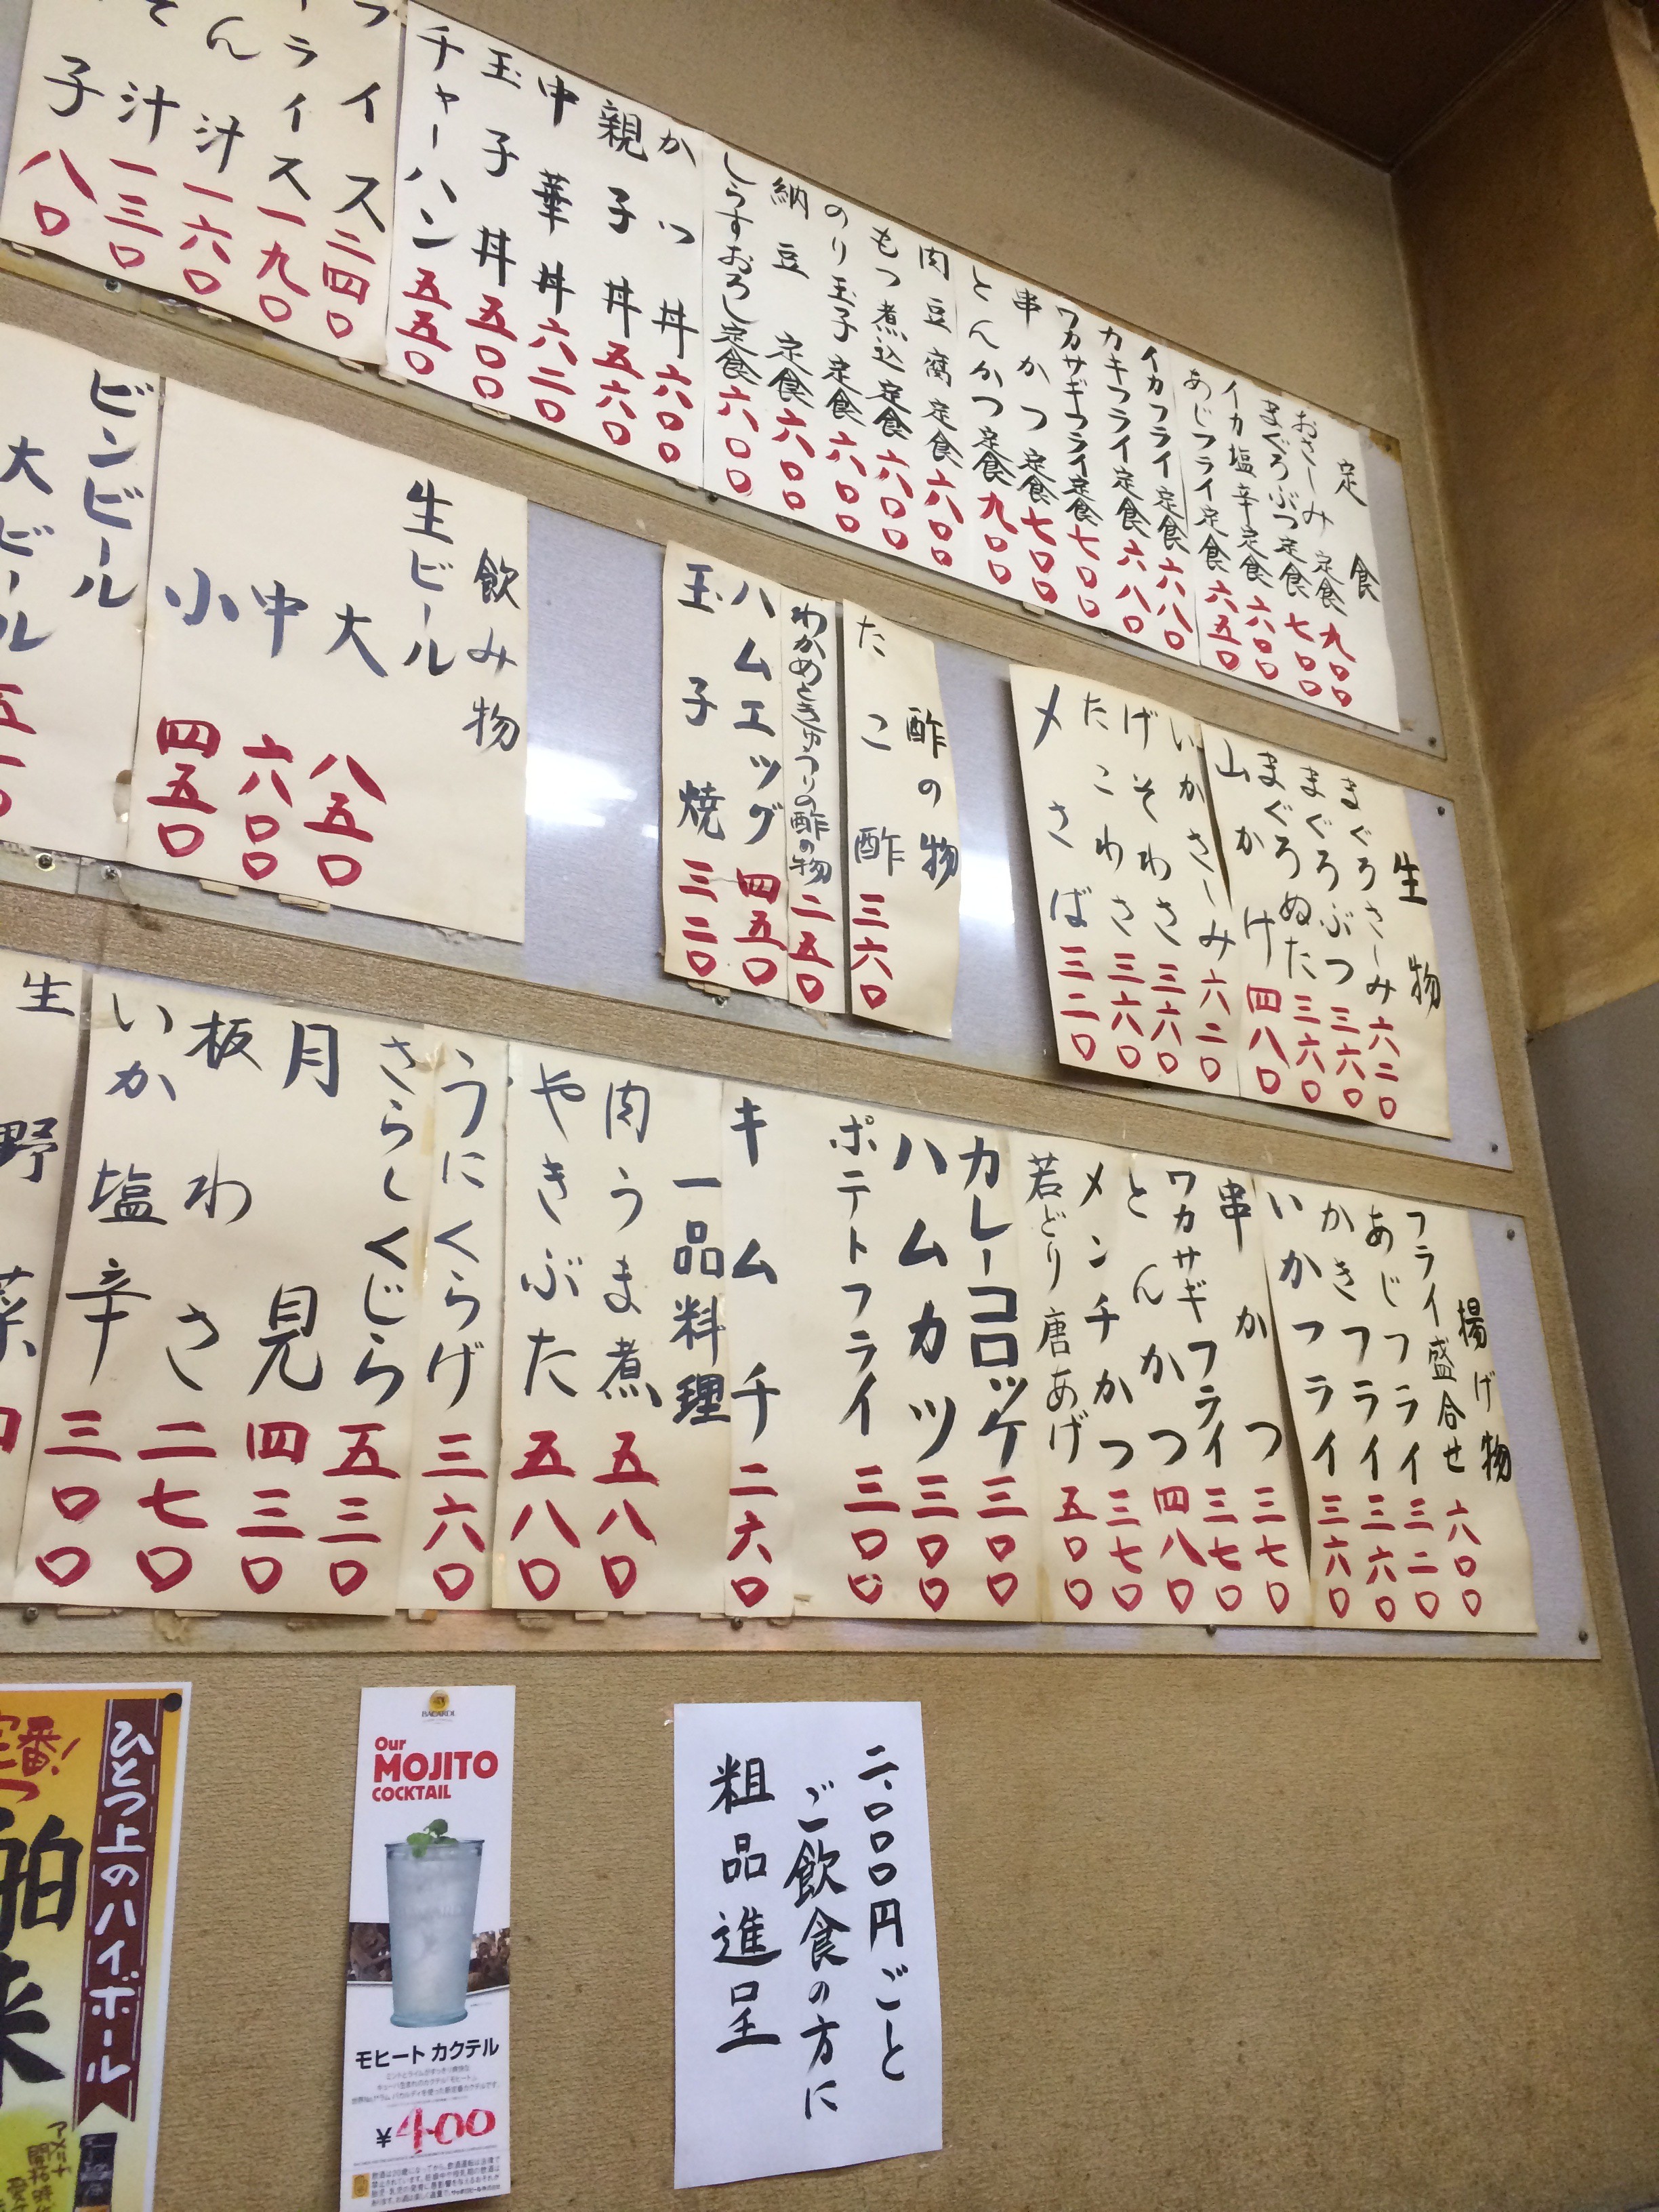 定食
おさしみ定食 九〇〇
まぐろぶつ定食 七〇〇
イカ塩辛定食 六〇〇
あじフライ定食 六五〇
イカフライ定食 六八〇
カキフライ定食 六八〇
ワカサギフライ定食 七〇〇
串かつ定食 七〇〇
とんかつ定食 九〇〇
肉豆腐定食 六〇〇
もつ煮込定食 六〇〇
のり玉子定食 六〇〇
納豆定食 六〇〇
しらすおろし定食 六〇〇
かつ丼 六〇〇
親子丼 五六〇
中華丼 六二〇
玉子丼 五〇〇
チャーハン 五五〇
イス 二四〇
ライス 一九〇
ん汁 一六〇
汁 一三〇
子 八〇
生物
まぐろさしみ 六二〇
まぐろぶつ 三六〇
まぐろぬた 三六〇
山かけ 四八〇
いかさしみ 六二〇
げそわさ 三六〇
たこわさ 三六〇
〆さば 三二〇
酢の物
たこ酢 三六〇
わかめときゅうりの酢の物 二五〇
ハムエッグ 四五〇
玉子焼 三二〇
飲み物
生ビール
大 八五〇
中 六〇〇
小 四五〇
ビンビール
大ビール
揚げ物
フライ盛合せ 六〇〇
あじフライ 三二〇
かきフライ 三六〇
いかフライ 三六〇
串かつ 三七〇
ワカサギフライ 三七〇
とんかつ 四八〇
メンチかつ 三七〇
若どり唐あげ 五〇〇
カレーコロッケ 三〇〇
ハムカツ 三〇〇
ポテトフライ 三〇〇
キムチ 二六〇
一品料理
肉うま煮 五八〇
やきぶた 五八〇
うにくらげ 三六〇
さらしくじら 五三〇
月見 四三〇
板わさ 二七〇
いか塩辛 三〇〇
生野菜
二、〇〇〇円ごと
ご飲食の方に
粗品進呈
BACARDI
Our
MOJITO
COCKTAIL
モヒート カクテル
¥400
ひとつ上のハイボール
定番!
舶来